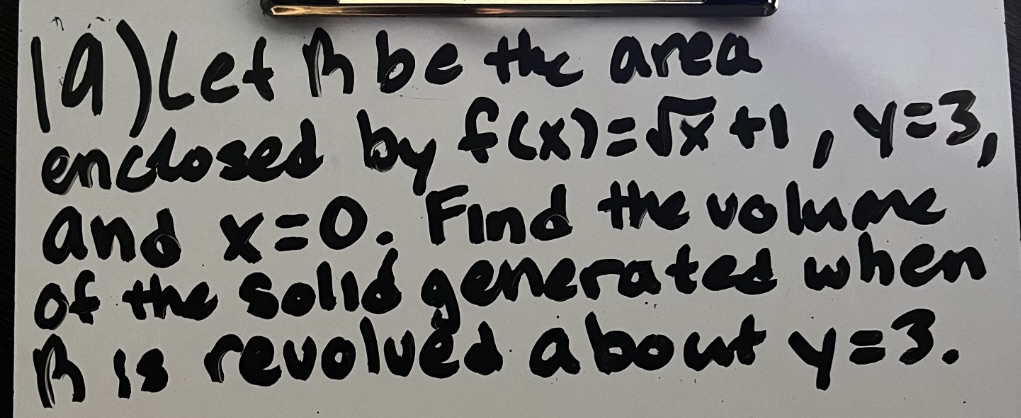 1a) Let R be the area
enclosed by f(x)=√x +1, y=3,
and x=0. Find the volume
of the solid generated when
R is revolved about y=3.